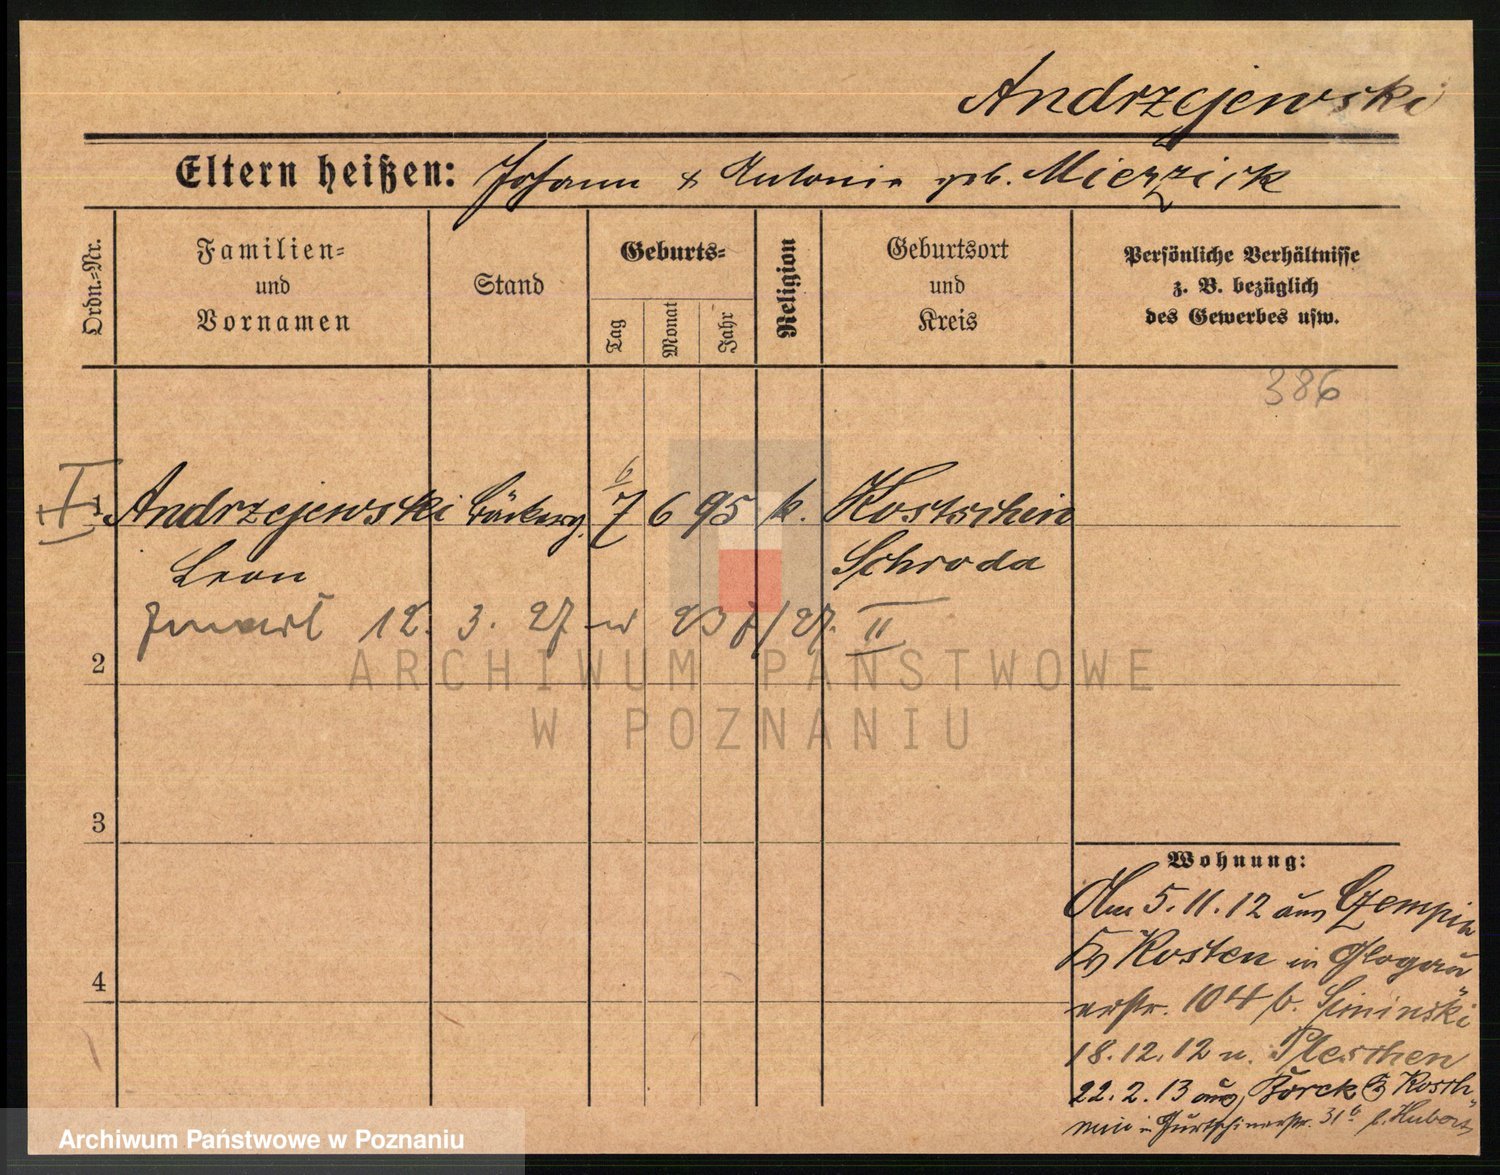 Andrzejewski
Eltern heißen: Johann & Antonie geb. Mierzick
Ordn.-Nr.
Familien-
und
Vornamen
Stand
Geburts-
Tag
Monat
Jahr
Religion
Geburtsort
und
Kreis
Persönliche Verhältnisse
z. B. bezüglich
des Gewerbes usw.
386
I
6
1 Andrzejewski Bäckerg. 7 6 95 k. Kostschin
Leon Schroda
12. 3. 27 23 7/27. II
2
3
4
Wohnung:
Am 5.11.12 aus Czempin
Kr Kosten in Glogau
erstr. 104 b. Siminski
18.12.12 n. Pleschen
22.2.13 aus Borek Kr Kosch
min in Gurtschinerstr. 31 b. Hubert
ARCHIWUM PAŃSTWOWE
W POZNANIU
Archiwum Państwowe w Poznaniu